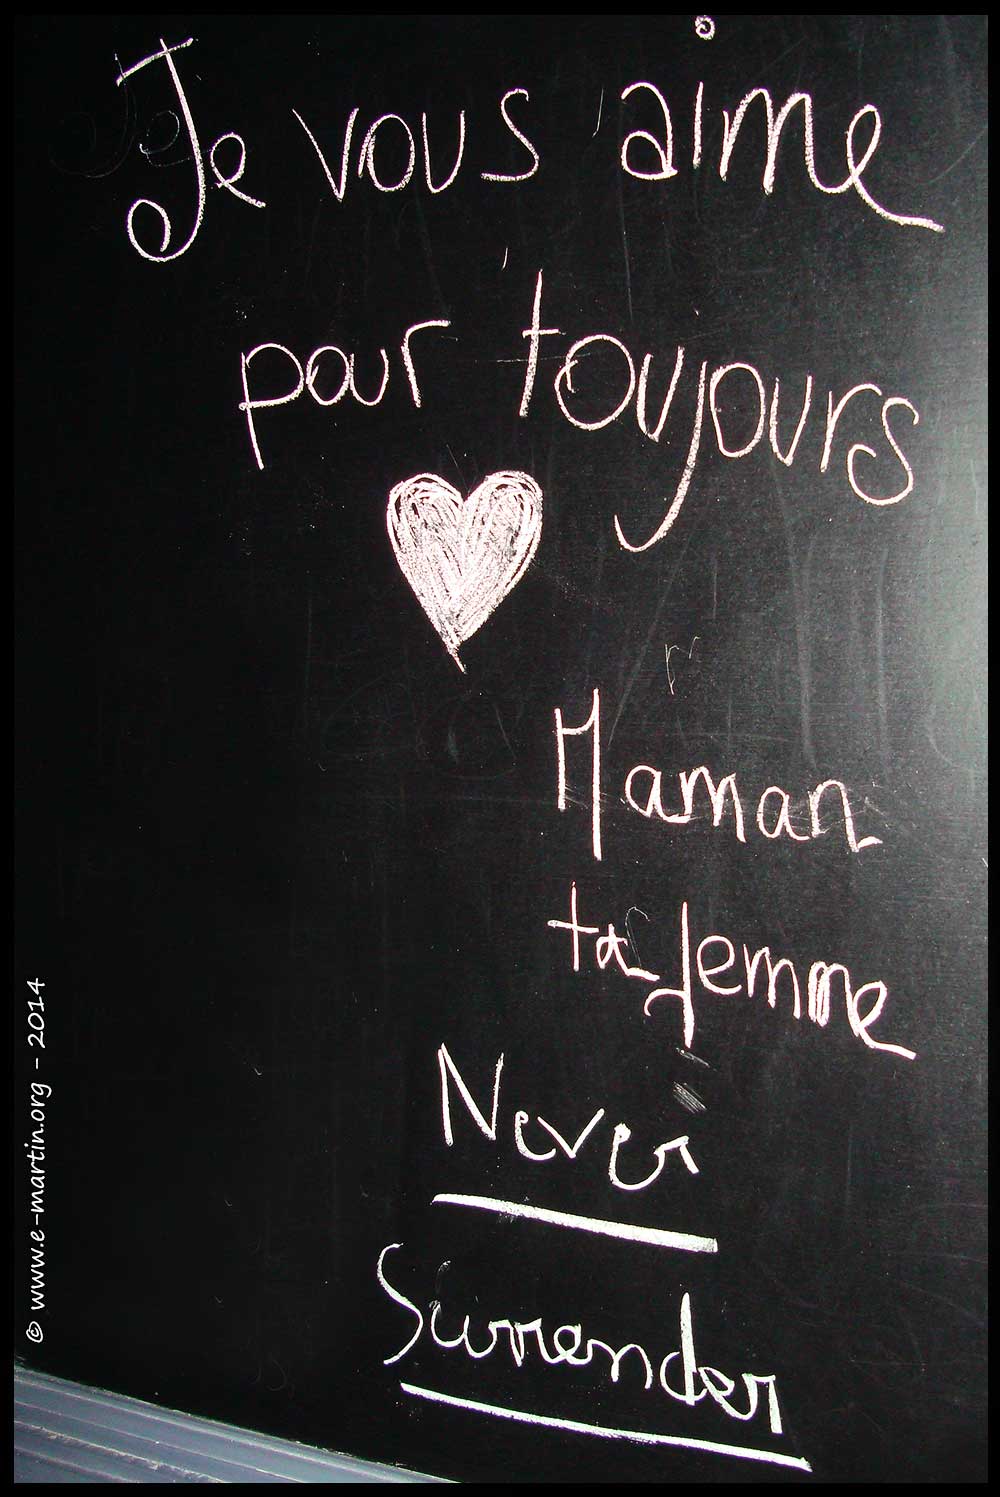 Je vous aime
pour toujours
Maman
ta femme
Never
Surrender
© www.e-martin.org - 2014